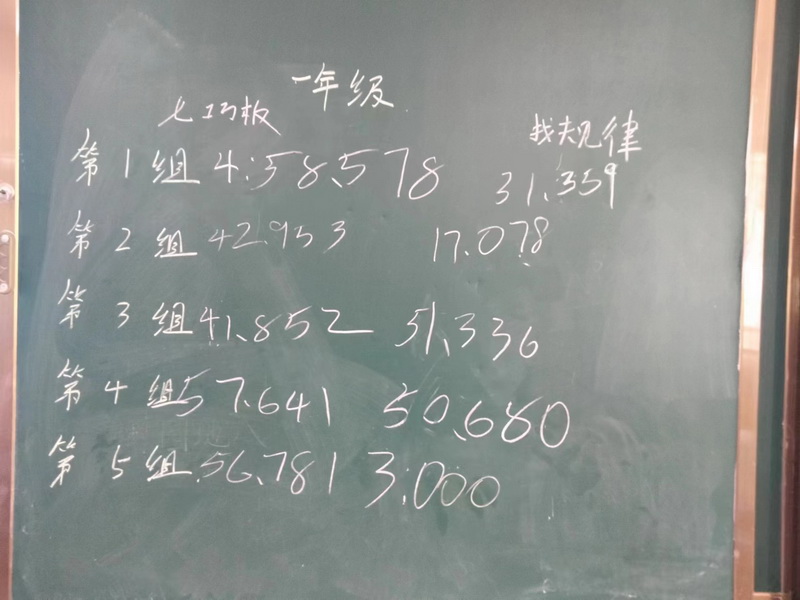 一年级
七巧板 找规律
第1组 4:58.578 31.359
第2组 42.953 17.078
第3组 41.852 51.336
第4组 57.641 50.680
第5组 56.781 3.000